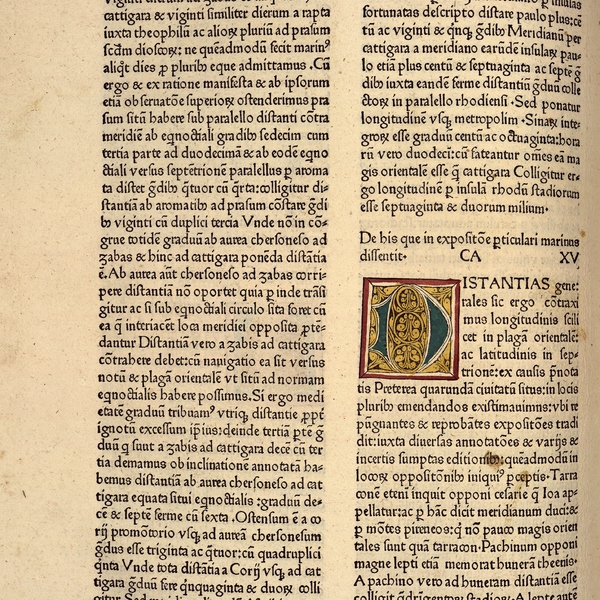 cattigara & viginti similiter dierum a rapta
iuxta theophilũ ac alioꝝ pluriũ ad prasum
scd̃m dioscoꝝ: ne quẽadmodũ fecit marinꝰ
aliq̃t dies ꝑ pluribꝰ eque admittamus . Cũ
ergo & ex ratione manifesta & ab ipsorum
etiã obseruatõe superioꝝ ostenderimus pra
sum sitũ habere sub parallelo distanti cõtra
meridiẽ ab eqnoctiali gradibꝰ sedecim cum
tertia parte ad duodecimã & ab eodẽ eqno
ctiali versus septẽtrionẽ paralellus ꝑ aroma
ta distet g̃dibꝰ q̃tuor cũ q̃rta: colligitur di-
stantiã ab aromatibꝰ ad prasum cõstare g̃di
bꝰ viginti cũ duplici tercia Vnde nõ in cõ-
grue totidẽ graduũ ab aurea chersoneso ad
zabas & hinc ad cattigara ponẽda distãtia
ẽ. Ab aurea aũt chersoneso ad zabas corri-
pere distantiã nõ oportet quia ꝑ inde trãsi
gitur ac si sub eqnoctiali circulo sita foret cũ
ea q̃ interiacẽt loca meridiei opposita p̃tẽ-
dantur Distantiã vero a zabis ad cattigara
cõtrahere debet: cũ nauigatio ea sit versus
notũ & plagã orientalẽ vt sitũ ad normam
eqnoctialis habere possimus. Si ergo medi
etatẽ graduũ tribuamꝰ vtriq; distantie ꝓpt̃
ignotũ excessum ip̃ius: deinde tertiã p̃tẽ g̃
duũ q̃ sunt a zabis ad cattigara decẽ cũ ter
tia demamus ob inclinationẽ annotatã ha-
bemus distantiã ab aurea chersoneso ad cat
tigara equata situi eqnoctialis : graduũ de-
cẽ & septẽ ferme cũ sexta . Ostensum ẽ a co
rij promõtorio vsq; ad aureã chersonesum
g̃dus esse triginta ac q̃tuor: cũ quadruplici
q̃nta Vnde tota distãtia a Corij vsq; ad cat
tigara g̃duũ fere q̃nquaginta & duoꝝ colli
fortunatas descripto distare paulo plus: cẽ
tũ ac viginti & q̃nq; g̃dibꝰ Meridianũ ꝑ
cattigara a meridiano earũdẽ insulaꝝ pau-
lo etiã plus centũ & septuaginta ac septẽ g̃
dibꝰ iuxta eandẽ ferme distantiũ g̃duũ colle
ctoꝝ in paralello rhodiensi . Sed ponatur
longitudinẽ vsq; metropolim . Sinaꝝ inte-
groꝝ esse graduũ centũ ac octuaginta: hora
rũ vero duodecĩ: cũ fateantur omes eã ma
gis orientalẽ esse q̃ cattigara Colligitur er-
go longitudinẽ ꝑ insulã rhodũ stadiorum
esse septuaginta & duorum milium.
De his que in expositõe ꝑticulari marinus
dissentit. CA XV
DISTANTIAS gene:
rales sic ergo cõtraxi
mus longitudinis scili
cet in plagã orientalẽ:
ac latitudinis in sep-
trionẽ: ex causis p̃nota
tis Preterea quarundã ciuitatũ situs: in locis
pluribꝰ emendandos existimauimns: vbi re
pũgnantes & reprobãtes expositões tradi
dit: iuxta diuersas annotatões & varijs &
incertis sumptas editionibꝰ: quẽadmodũ in
locoꝝ oppositõnibꝰ iniquiꝰ p̃ceptis . Tarra
conẽ etenĩ inquit opponi cesarie q̃ Ioa ap-
pellatur: ac ꝑ hãc dicit meridianum duci: &
ꝑ mõtes pireneos: q̃ nõ pauco magis orien
tales sunt quã tarracon . Pachinum opponi
magne lepti etiã memorat hunerã theenis.
A pachino vero ad huneram distantiã esse